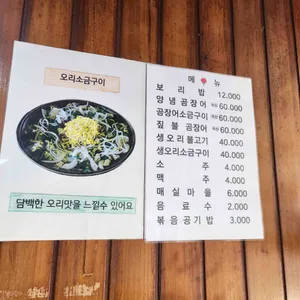 오리소금구이
담백한 오리맛을 느낄수 있어요
메 뉴
보 리 밥 12.000
양념곰장어 60.000
곰장어소금구이 60.000
짚불 곰장어 60.000
생오리불고기 40.000
생오리소금구이 40.000
소 주 4.000
맥 주 4.000
매실마을 6.000
음 료 수 2.000
볶음공기밥 3.000